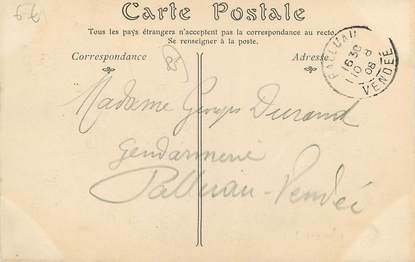 Carte Postale
Tous les pays étrangers n'acceptent pas la correspondance au recto.
Se renseigner à la poste.
Correspondance
Adresse
PALLUAU
VENDÉE
Madame Georges Durand
Gendarmerie
Palluau-Vendée